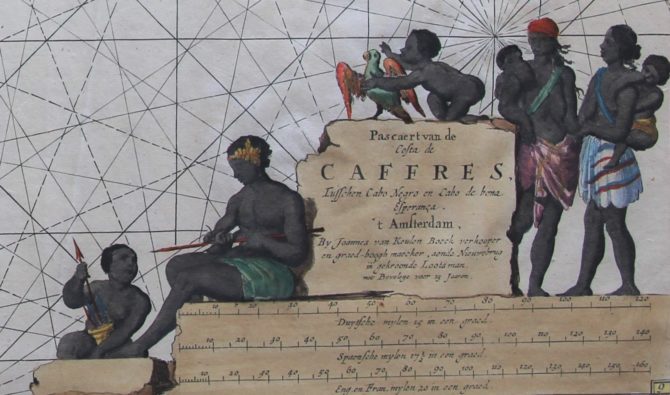 Pascaert van de
Costa de
CAFFRES,
Tusschen Cabo Negro en Cabo de bona
Esperança.
't Amsterdam,
By Joannes van Keulen Boeck verkooper
en graed-boogh maecker, aende Nieuwebrug
in gekroonde Lootsman.
met Previlege voor 15 Jaaren.
10 20 30 40 50 60 70 80 90 100 110 120
Duytsche mylen 15 in een graed.
10 20 30 40 50 60 70 80 90 100 110 120 130 140
Spaensche mylen 17½ in een graed.
10 20 30 40 50 60 70 80 90 100 110 120 130 140 150 160
Eng. en Fran. mylen 20 in een graed.